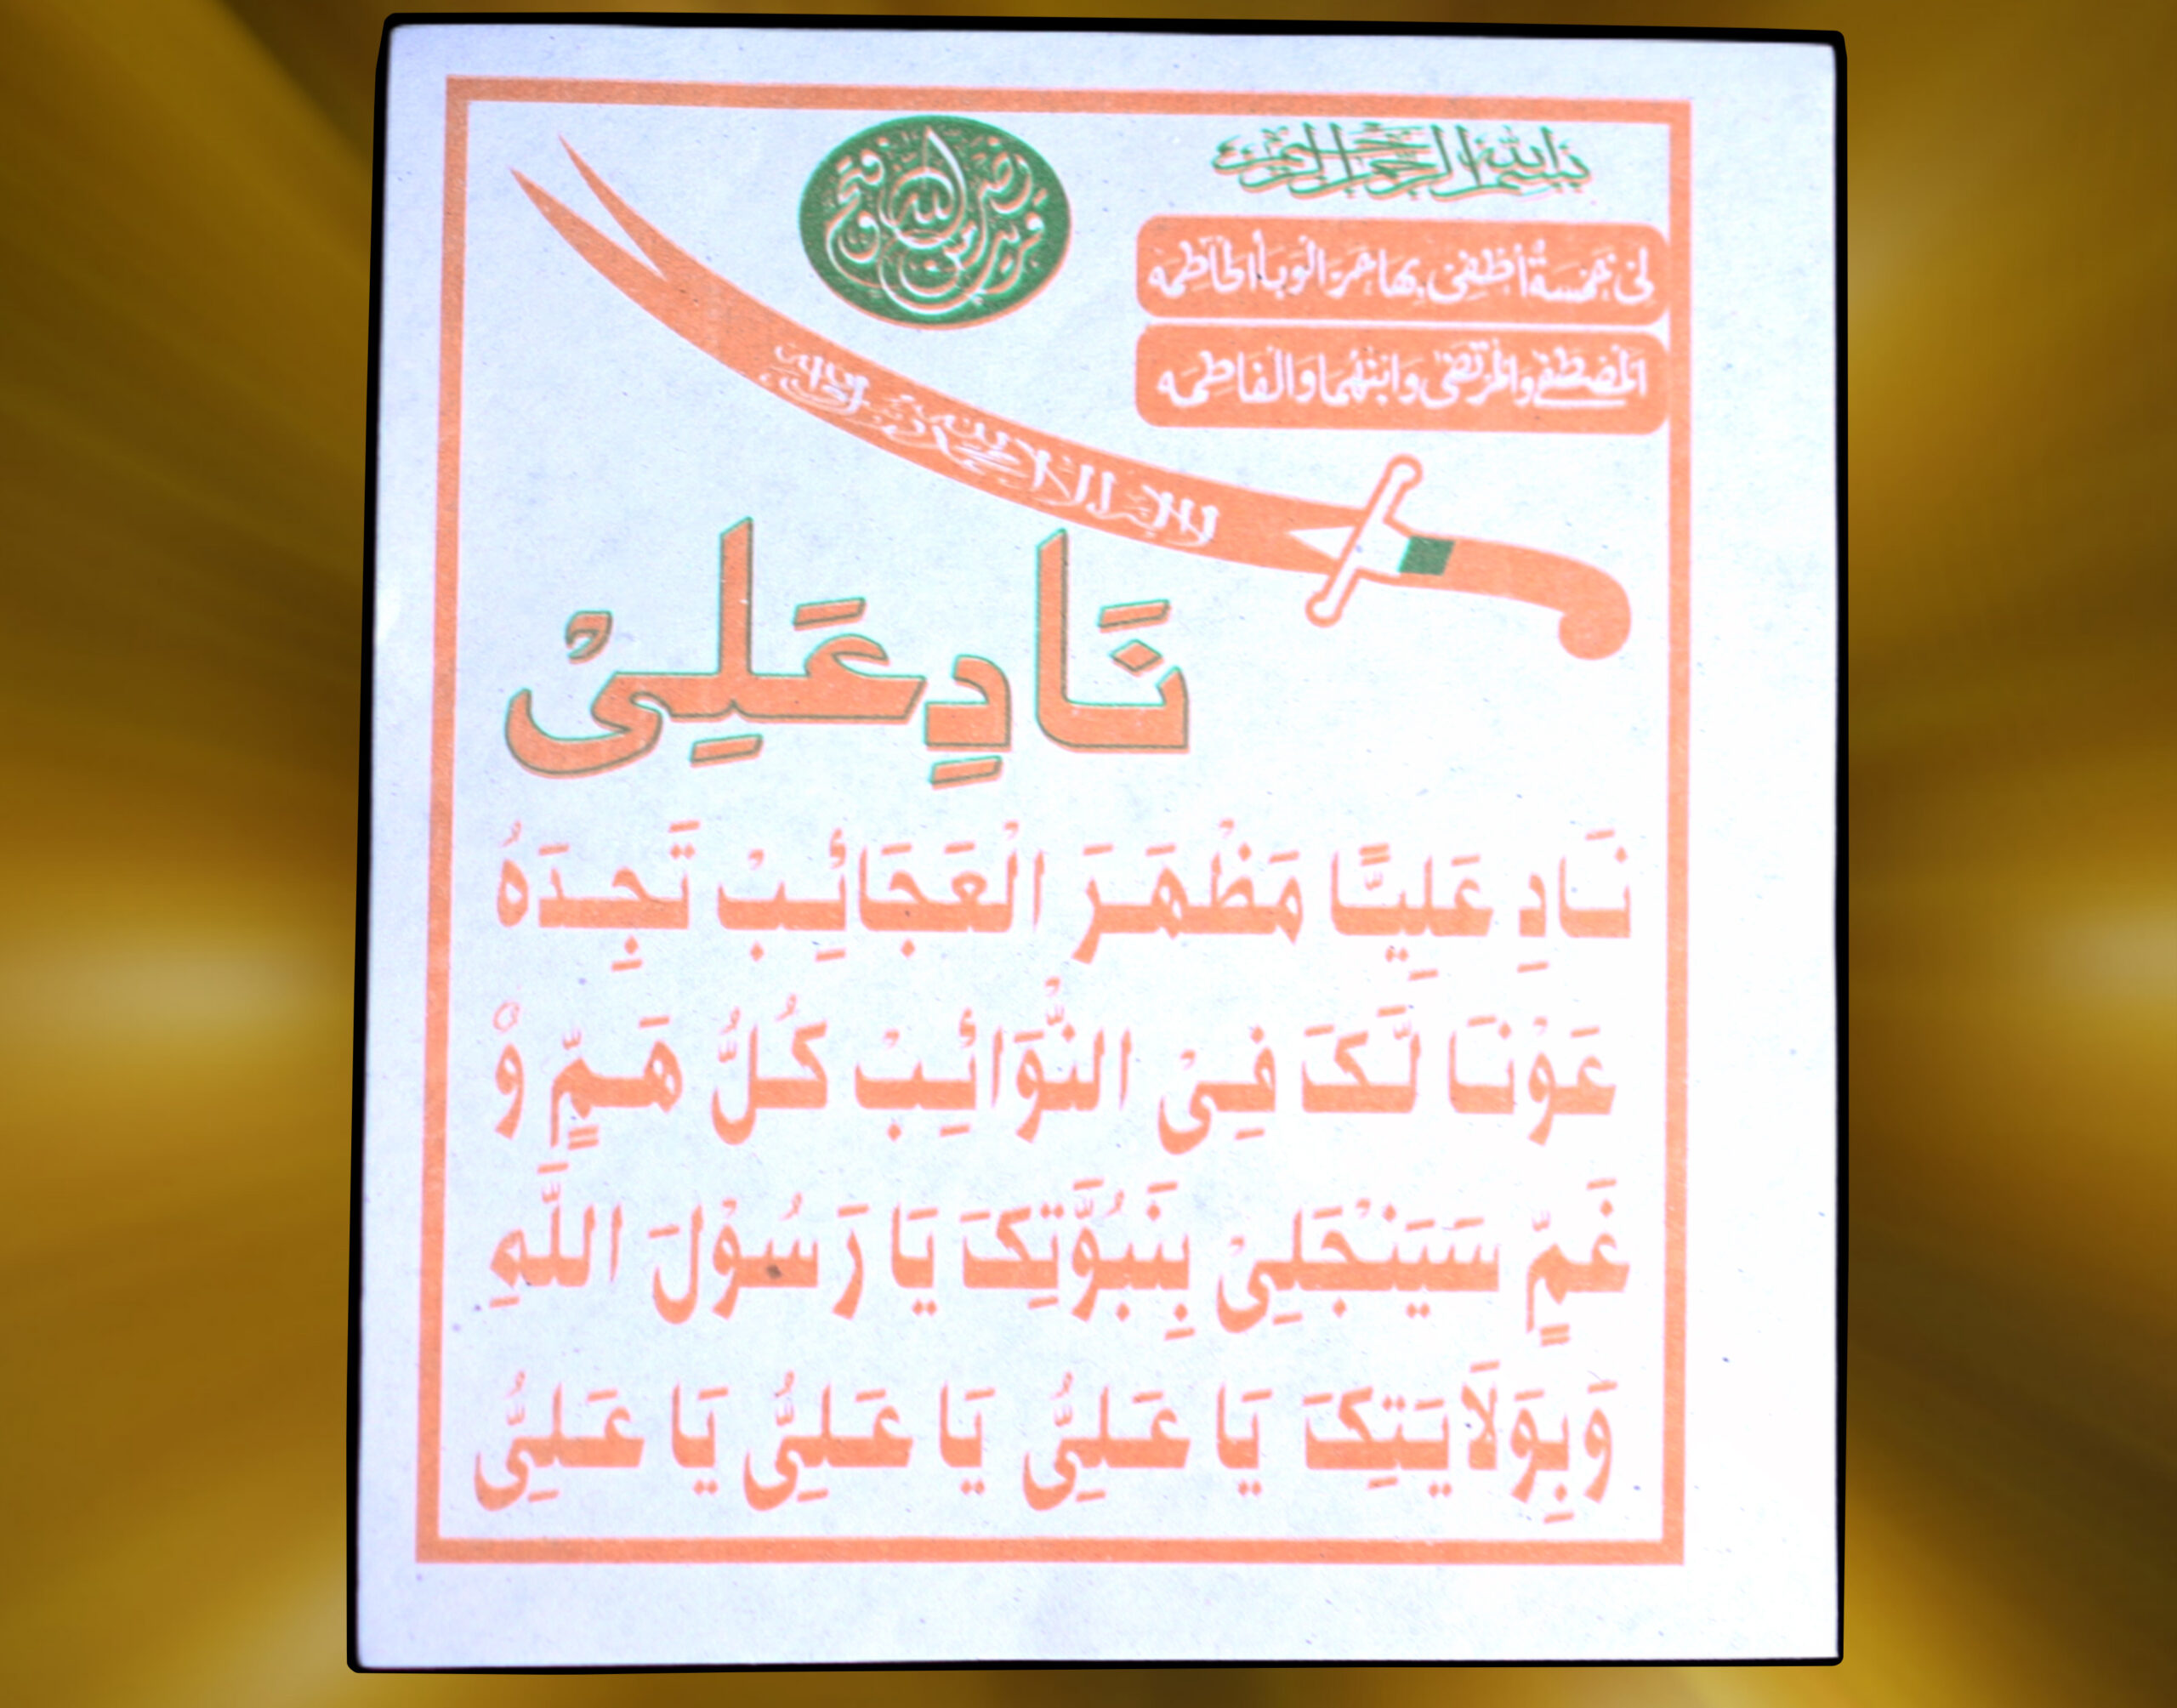 بسم الله الرحمن الرحيم
نصر من الله و فتح قريب
لِیْ خَمْسَةٌ اُطْفِیْ بِهَا حَرَّ الْوَبَاءِ الْحَاطِمَه
اَلْمُصْطَفٰی وَالْمُرْتَضٰی وَابْنَهُمَا وَالْفَاطِمَه
نَادِ عَلِیْ
نَادِ عَلِیًّا مَظْهَرَ الْعَجَائِبْ تَجِدَهُ
عَوْنَا لَّکَ فِیْ النَّوَائِبْ کُلُّ هَمٍّ وْ
غَمٍّ سَیَنْجَلِیْ بِنَبُوَّتِکَ یَا رَسُوْلَ اللّٰهِ
وَبِوَلَایَتِکَ یَا عَلِیُّ یَا عَلِیُّ یَا عَلِیُّ